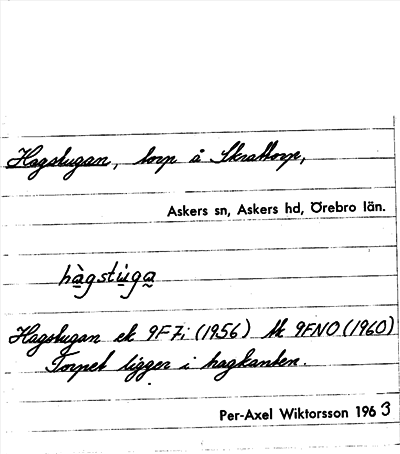 Hagstugan, torp å Skrattorp,
Askers sn, Askers hd, Örebro län.
hàgstu̇ga
Hagstugan ek 9F7i (1956) tk 9FNO (1960)
Torpet ligger i hagkanten.
Per-Axel Wiktorsson 1963